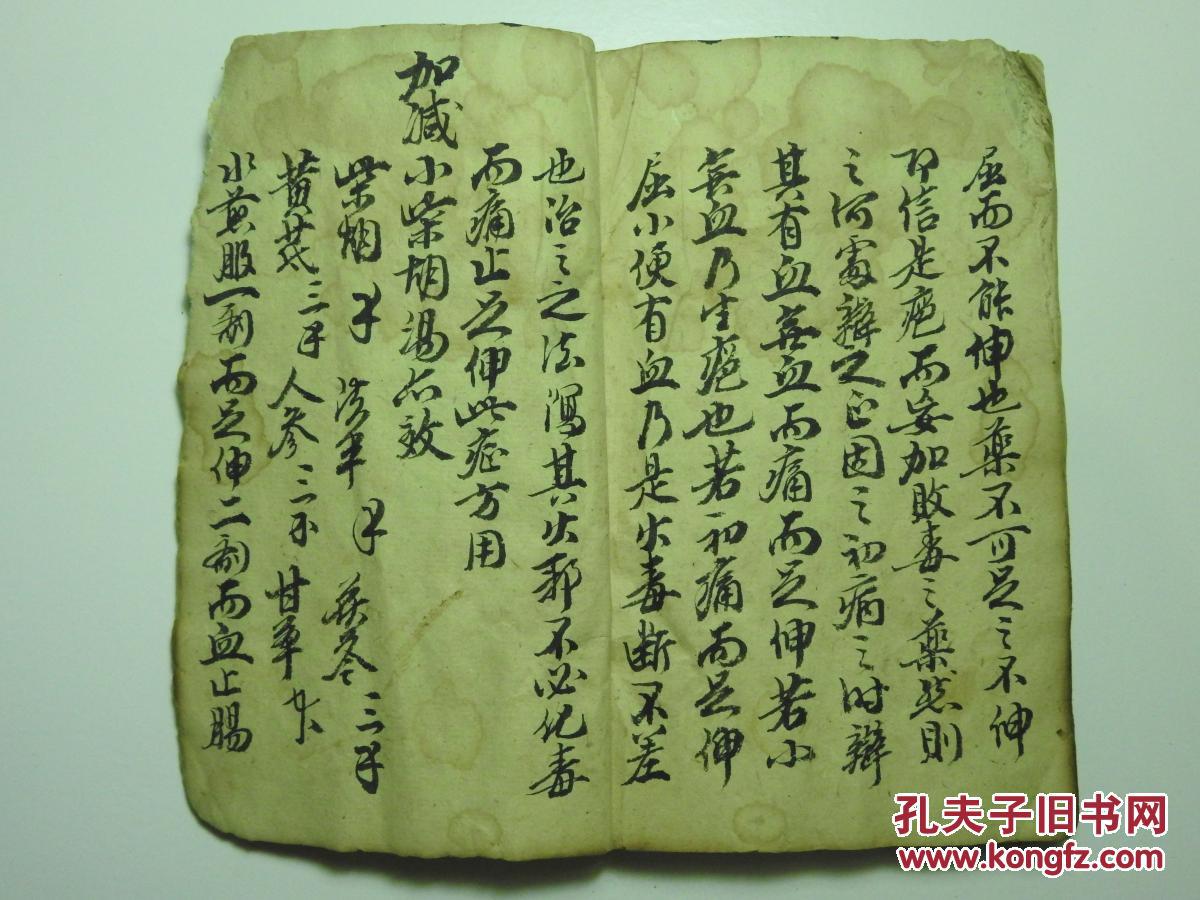 屈而不能伸也藥不可足之不伸
即信是疤而妄加敗毒之藥然則
之何處辯之正因之初病之时辯
其有血無血而痛而足伸若小
無血乃生疤也若初痛而足伸
屈小便有血乃是火毒断不差
也治之之法瀉其火邪不必化毒
而痛止足伸此症方用
加减小柴胡湯六效
柴胡 三
黄芩三 人參三 甘草
水煎服一劑而足伸二劑而血止腸
孔夫子旧书网
www.kongfz.com